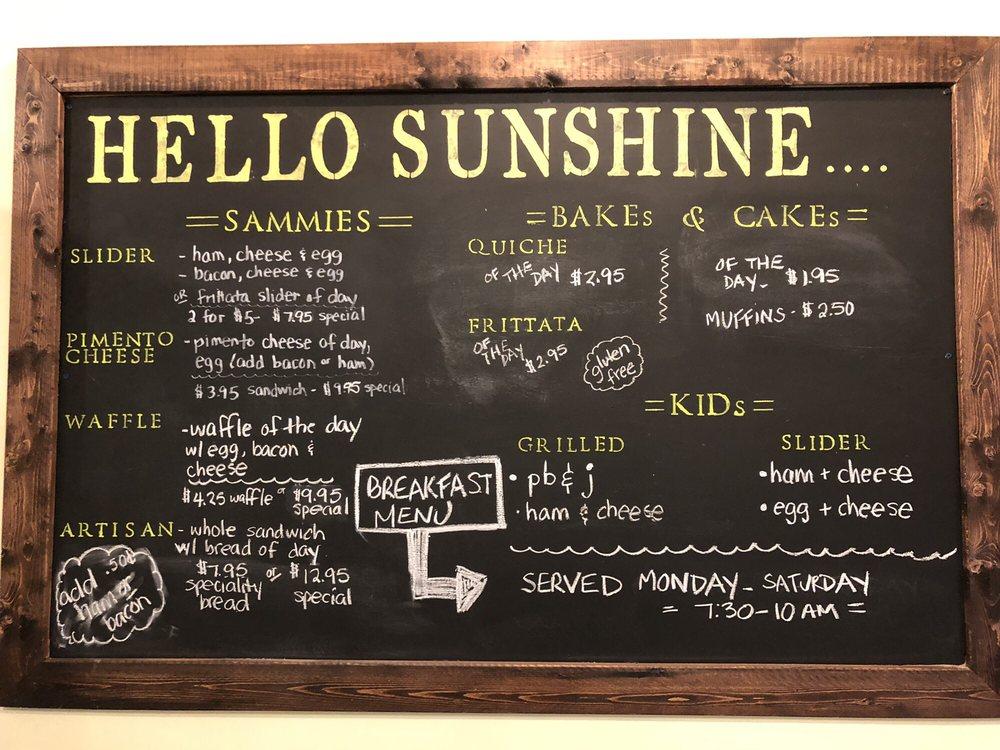 HELLO SUNSHINE....
=SAMMIES=
SLIDER
- ham, cheese & egg
- bacon, cheese & egg
or frittata slider of day
2 for $5- $7.95 special
PIMENTO
CHEESE
-pimento cheese of day,
egg (add bacon or ham)
$3.95 sandwich - $9.95 special
WAFFLE
-waffle of the day
w/ egg, bacon &
cheese
$4.25 waffle or $9.95
special
ARTISAN - whole sandwich
w/ bread of day
$7.95 or $12.95
speciality special
bread
add .50¢
ham or
bacon
BREAKFAST
MENU
=BAKEs & CAKEs=
QUICHE
OF THE DAY $2.95
FRITTATA
OF
THE
DAY $2.95
gluten
free
OF THE
DAY- $1.95
MUFFINS - $2.50
=KIDs=
GRILLED
• pb & j
• ham & cheese
SLIDER
•ham + cheese
• egg + cheese
SERVED MONDAY - SATURDAY
= 7:30-10 AM =